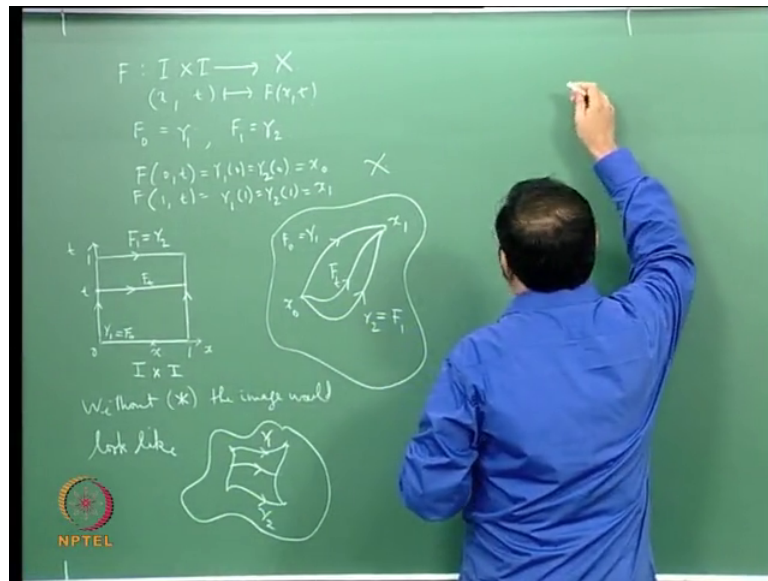 F : I × I ⟶ X
(x, t) ⟼ F(x,t)
F₀ = γ₁ , F₁ = γ₂
F(0,t) = γ₁(0) = γ₂(0) = x₀
F(1,t) = γ₁(1) = γ₂(1) = x₁
X
t 1 F₁ = γ₂
t Fₜ
γ₁ = F₀
0 x 1 x
I × I
F₀ = γ₁ x₁
Fₜ
x₀
γ₂ = F₁
Without (*) the image would
look like
γ₁
γ₂
NPTEL